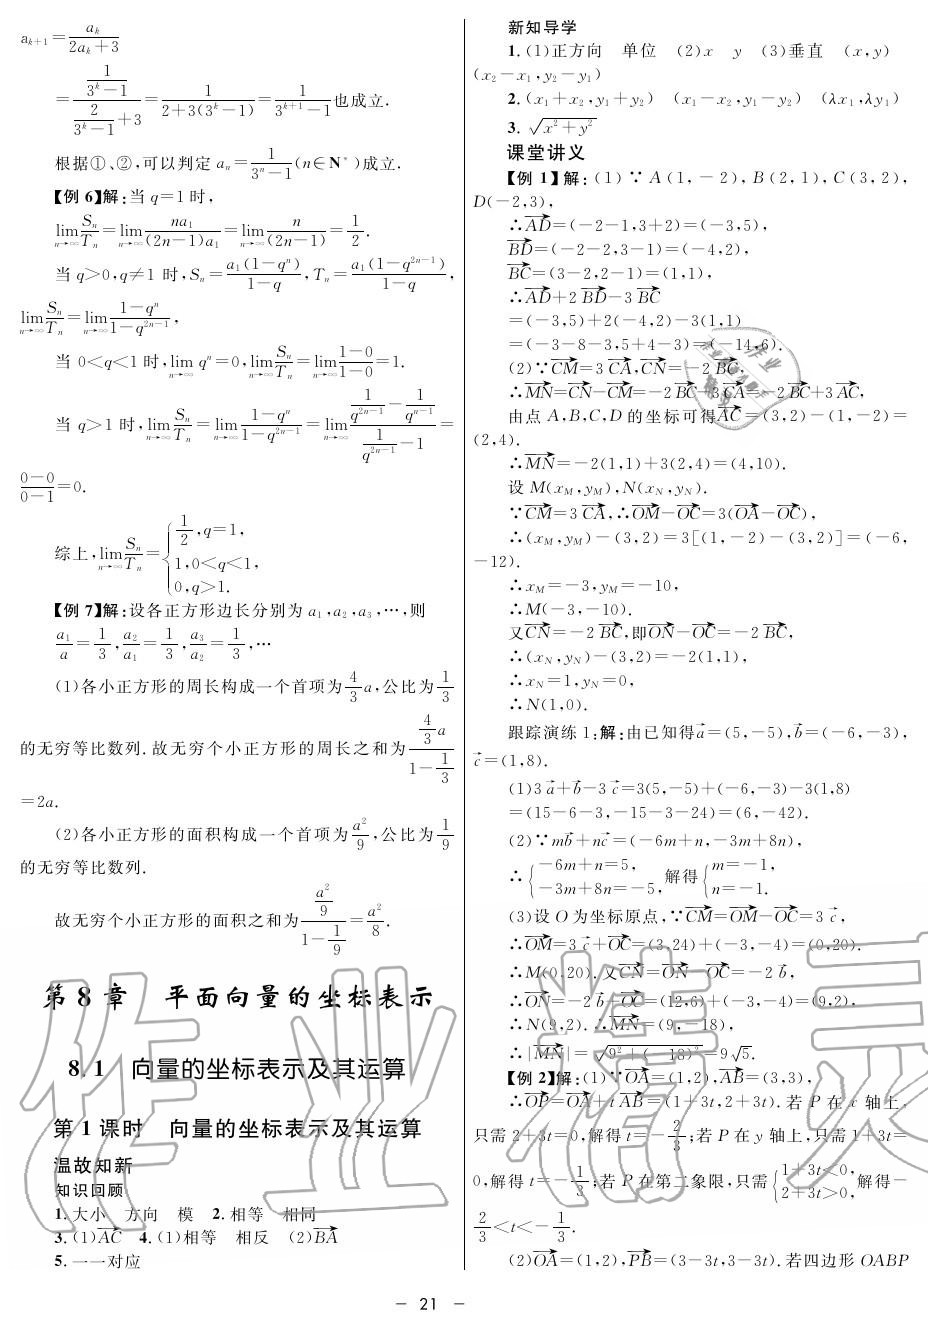 a_{k+1}=\frac{a_k}{2a_k+3}
=\frac{\frac{1}{3^k-1}}{\frac{2}{3^k-1}+3}=\frac{1}{2+3(3^k-1)}=\frac{1}{3^{k+1}-1}也成立.
根据①、②,可以判定 a_n=\frac{1}{3^n-1}(n∈N^*)成立.
【例 6】解:当 q=1 时,
\lim_{n→∞}\frac{S_n}{T_n}=\lim_{n→∞}\frac{na_1}{(2n-1)a_1}=\lim_{n→∞}\frac{n}{(2n-1)}=\frac{1}{2}.
当 q>0,q≠1 时,S_n=\frac{a_1(1-q^n)}{1-q},T_n=\frac{a_1(1-q^{2n-1})}{1-q},
\lim_{n→∞}\frac{S_n}{T_n}=\lim_{n→∞}\frac{1-q^n}{1-q^{2n-1}},
当 0<q<1 时,\lim_{n→∞}q^n=0,\lim_{n→∞}\frac{S_n}{T_n}=\lim_{n→∞}\frac{1-0}{1-0}=1.
当 q>1 时,\lim_{n→∞}\frac{S_n}{T_n}=\lim_{n→∞}\frac{1-q^n}{1-q^{2n-1}}=\lim_{n→∞}\frac{\frac{1}{q^{2n-1}}-\frac{1}{q^{n-1}}}{\frac{1}{q^{2n-1}}-1}=
\frac{0-0}{0-1}=0.
综上,\lim_{n→∞}\frac{S_n}{T_n}={\frac{1}{2},q=1,
1,0<q<1,
0,q>1.
【例 7】解:设各正方形边长分别为 a_1,a_2,a_3,…,则
\frac{a_1}{a}=\frac{1}{3},\frac{a_2}{a_1}=\frac{1}{3},\frac{a_3}{a_2}=\frac{1}{3},…
(1)各小正方形的周长构成一个首项为\frac{4}{3}a,公比为\frac{1}{3}
的无穷等比数列.故无穷个小正方形的周长之和为\frac{\frac{4}{3}a}{1-\frac{1}{3}}
=2a.
(2)各小正方形的面积构成一个首项为\frac{a^2}{9},公比为\frac{1}{9}
的无穷等比数列.
故无穷个小正方形的面积之和为\frac{\frac{a^2}{9}}{1-\frac{1}{9}}=\frac{a^2}{8}.
第 8 章 平面向量的坐标表示
8.1 向量的坐标表示及其运算
第 1 课时 向量的坐标表示及其运算
温故知新
知识回顾
1.大小 方向 模 2.相等 相同
3.(1)\overrightarrow{AC} 4.(1)相等 相反 (2)\overrightarrow{BA}
5.一一对应
新知导学
1.(1)正方向 单位 (2)x y (3)垂直 (x,y)
(x_2-x_1,y_2-y_1)
2.(x_1+x_2,y_1+y_2) (x_1-x_2,y_1-y_2) (λx_1,λy_1)
3.\sqrt{x^2+y^2}
课堂讲义
【例 1】解:(1)∵A(1,-2),B(2,1),C(3,2),
D(-2,3),
∴\overrightarrow{AD}=(-2-1,3+2)=(-3,5),
\overrightarrow{BD}=(-2-2,3-1)=(-4,2),
\overrightarrow{BC}=(3-2,2-1)=(1,1),
∴\overrightarrow{AD}+2\overrightarrow{BD}-3\overrightarrow{BC}
=(-3,5)+2(-4,2)-3(1,1)
=(-3-8-3,5+4-3)=(-14,6).
(2)∵\overrightarrow{CM}=3\overrightarrow{CA},\overrightarrow{CN}=-2\overrightarrow{BC},
∴\overrightarrow{MN}=\overrightarrow{CN}-\overrightarrow{CM}=-2\overrightarrow{BC}-3\overrightarrow{CA}=-2\overrightarrow{BC}+3\overrightarrow{AC},
由点 A,B,C,D 的坐标可得\overrightarrow{AC}=(3,2)-(1,-2)=
(2,4).
∴\overrightarrow{MN}=-2(1,1)+3(2,4)=(4,10).
设 M(x_M,y_M),N(x_N,y_N).
∵\overrightarrow{CM}=3\overrightarrow{CA},∴\overrightarrow{OM}-\overrightarrow{OC}=3(\overrightarrow{OA}-\overrightarrow{OC}),
∴(x_M,y_M)-(3,2)=3[(1,-2)-(3,2)]=(-6,
-12).
∴x_M=-3,y_M=-10,
∴M(-3,-10).
又\overrightarrow{CN}=-2\overrightarrow{BC},即\overrightarrow{ON}-\overrightarrow{OC}=-2\overrightarrow{BC},
∴(x_N,y_N)-(3,2)=-2(1,1),
∴x_N=1,y_N=0,
∴N(1,0).
跟踪演练 1:解:由已知得\vec{a}=(5,-5),\vec{b}=(-6,-3),
\vec{c}=(1,8).
(1)3\vec{a}+\vec{b}-3\vec{c}=3(5,-5)+(-6,-3)-3(1,8)
=(15-6-3,-15-3-24)=(6,-42).
(2)∵m\vec{b}+n\vec{c}=(-6m+n,-3m+8n),
∴{-6m+n=5, -3m+8n=-5,解得{m=-1, n=-1.
(3)设 O 为坐标原点,∵\overrightarrow{CM}=\overrightarrow{OM}-\overrightarrow{OC}=3\vec{c},
∴\overrightarrow{OM}=3\vec{c}+\overrightarrow{OC}=(3,24)+(-3,-4)=(0,20).
∴M(0,20).又\overrightarrow{CN}=\overrightarrow{ON}-\overrightarrow{OC}=-2\vec{b},
∴\overrightarrow{ON}=-2\vec{b}+\overrightarrow{OC}=(12,6)+(-3,-4)=(9,2),
∴N(9,2).∴\overrightarrow{MN}=(9,-18),
∴|\overrightarrow{MN}|=\sqrt{9^2+(-18)^2}=9\sqrt{5}.
【例 2】解:(1)∵\overrightarrow{OA}=(1,2),\overrightarrow{AB}=(3,3),
∴\overrightarrow{OP}=\overrightarrow{OA}+t\overrightarrow{AB}=(1+3t,2+3t).若 P 在 x 轴上,
只需 2+3t=0,解得 t=-\frac{2}{3};若 P 在 y 轴上,只需 1+3t=
0,解得 t=-\frac{1}{3};若 P 在第二象限,只需{1+3t<0, 2+3t>0,解得-
\frac{2}{3}<t<-\frac{1}{3}.
(2)\overrightarrow{OA}=(1,2),\overrightarrow{PB}=(3-3t,3-3t).若四边形 OABP
— 21 —
作业精灵